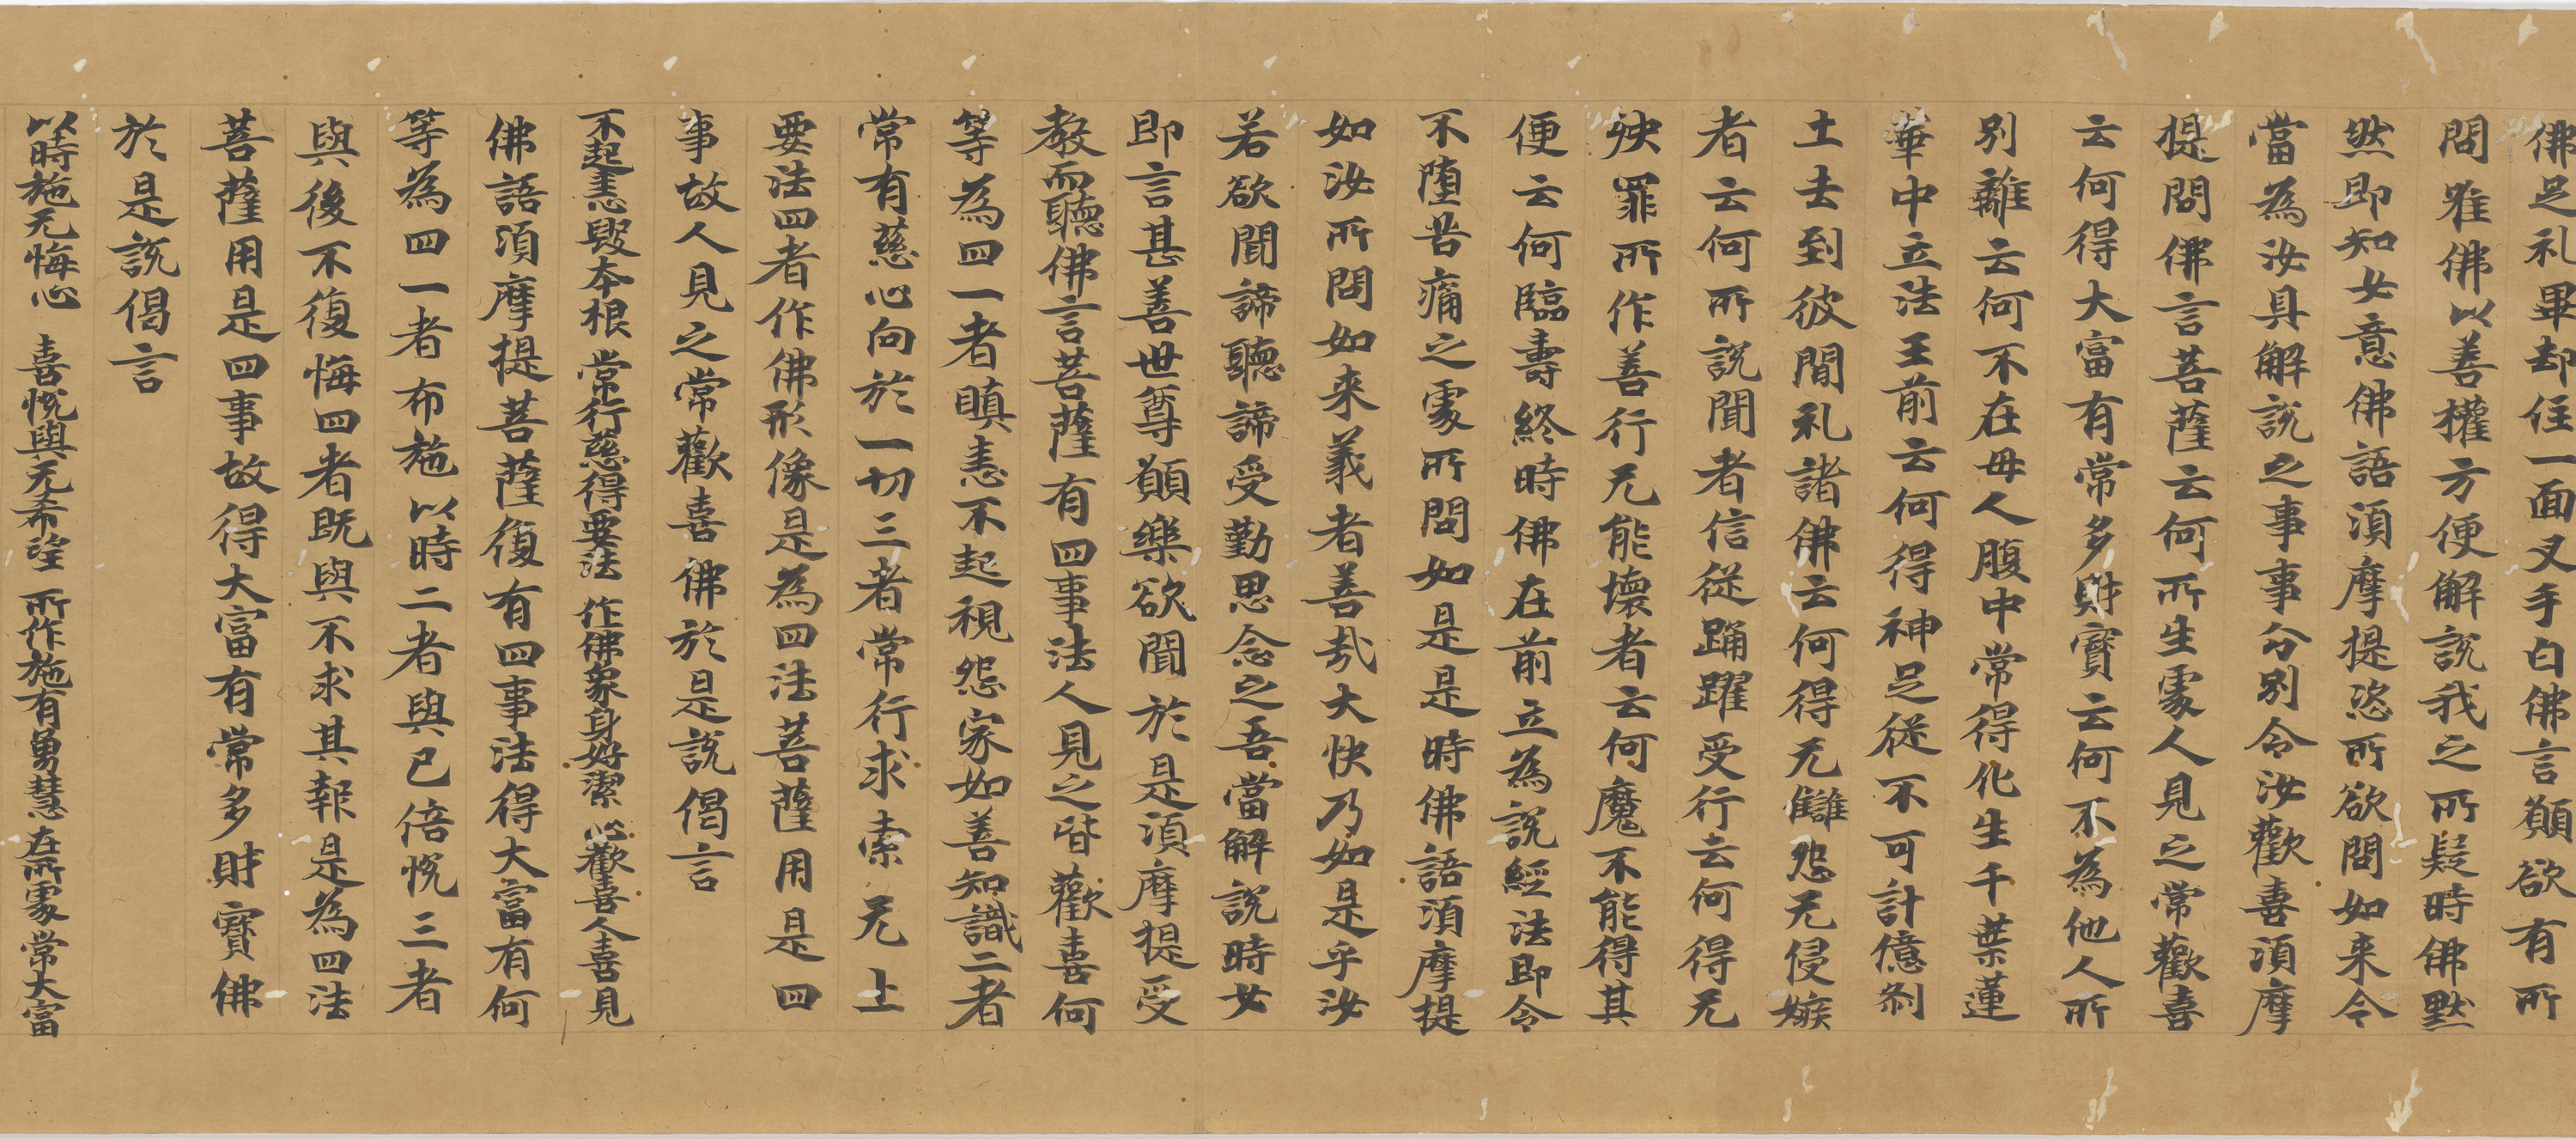 佛足礼畢却住一面叉手白佛言願欲有所
問唯佛以善權方便解說我之所疑時佛默
然即知女意佛語湏摩提恣所欲問如来今
當為汝具解說之事事分別令汝歡喜湏摩
提問佛言菩薩云何所生處人見之常歡喜
云何得大富有常多財寶云何不為他人所
別離云何不在母人腹中常得化生千葉蓮
華中立法王前云何得神足從不可計億剎
土去到彼間礼諸佛云何得无讎怨无侵嫉
者云何所說聞者信從踊躍受行云何得无
殃罪所作善行无能壞者云何魔不能得其
便云何臨壽終時佛在前立為說經法即令
不墮苦痛之處所問如是是時佛語湏摩提
如汝所問如来義者善哉大快乃如是乎汝
若欲聞諦聽諦受勤思念之吾當解說時女
即言甚善世尊願樂欲聞於是湏摩提受
教而聽佛言菩薩有四事法人見之皆歡喜何
等為四一者瞋恚不起視怨家如善知識二者
常有慈心向於一切三者常行求索无上
要法四者作佛形像是為四法菩薩用是四
事故人見之常歡喜佛於是說偈言
不起恚毀本根　常行慈得要法　作佛象身好潔　心歡喜人喜見
佛語湏摩提菩薩復有四事法得大富有何
等為四一者布施以時二者與已倍悅三者
與後不復悔四者既與不求其報是為四法
菩薩用是四事故得大富有常多財寶佛
於是說偈言
以時施无悔心　喜悅與无希望　所作施有勇慧　在所處常大富